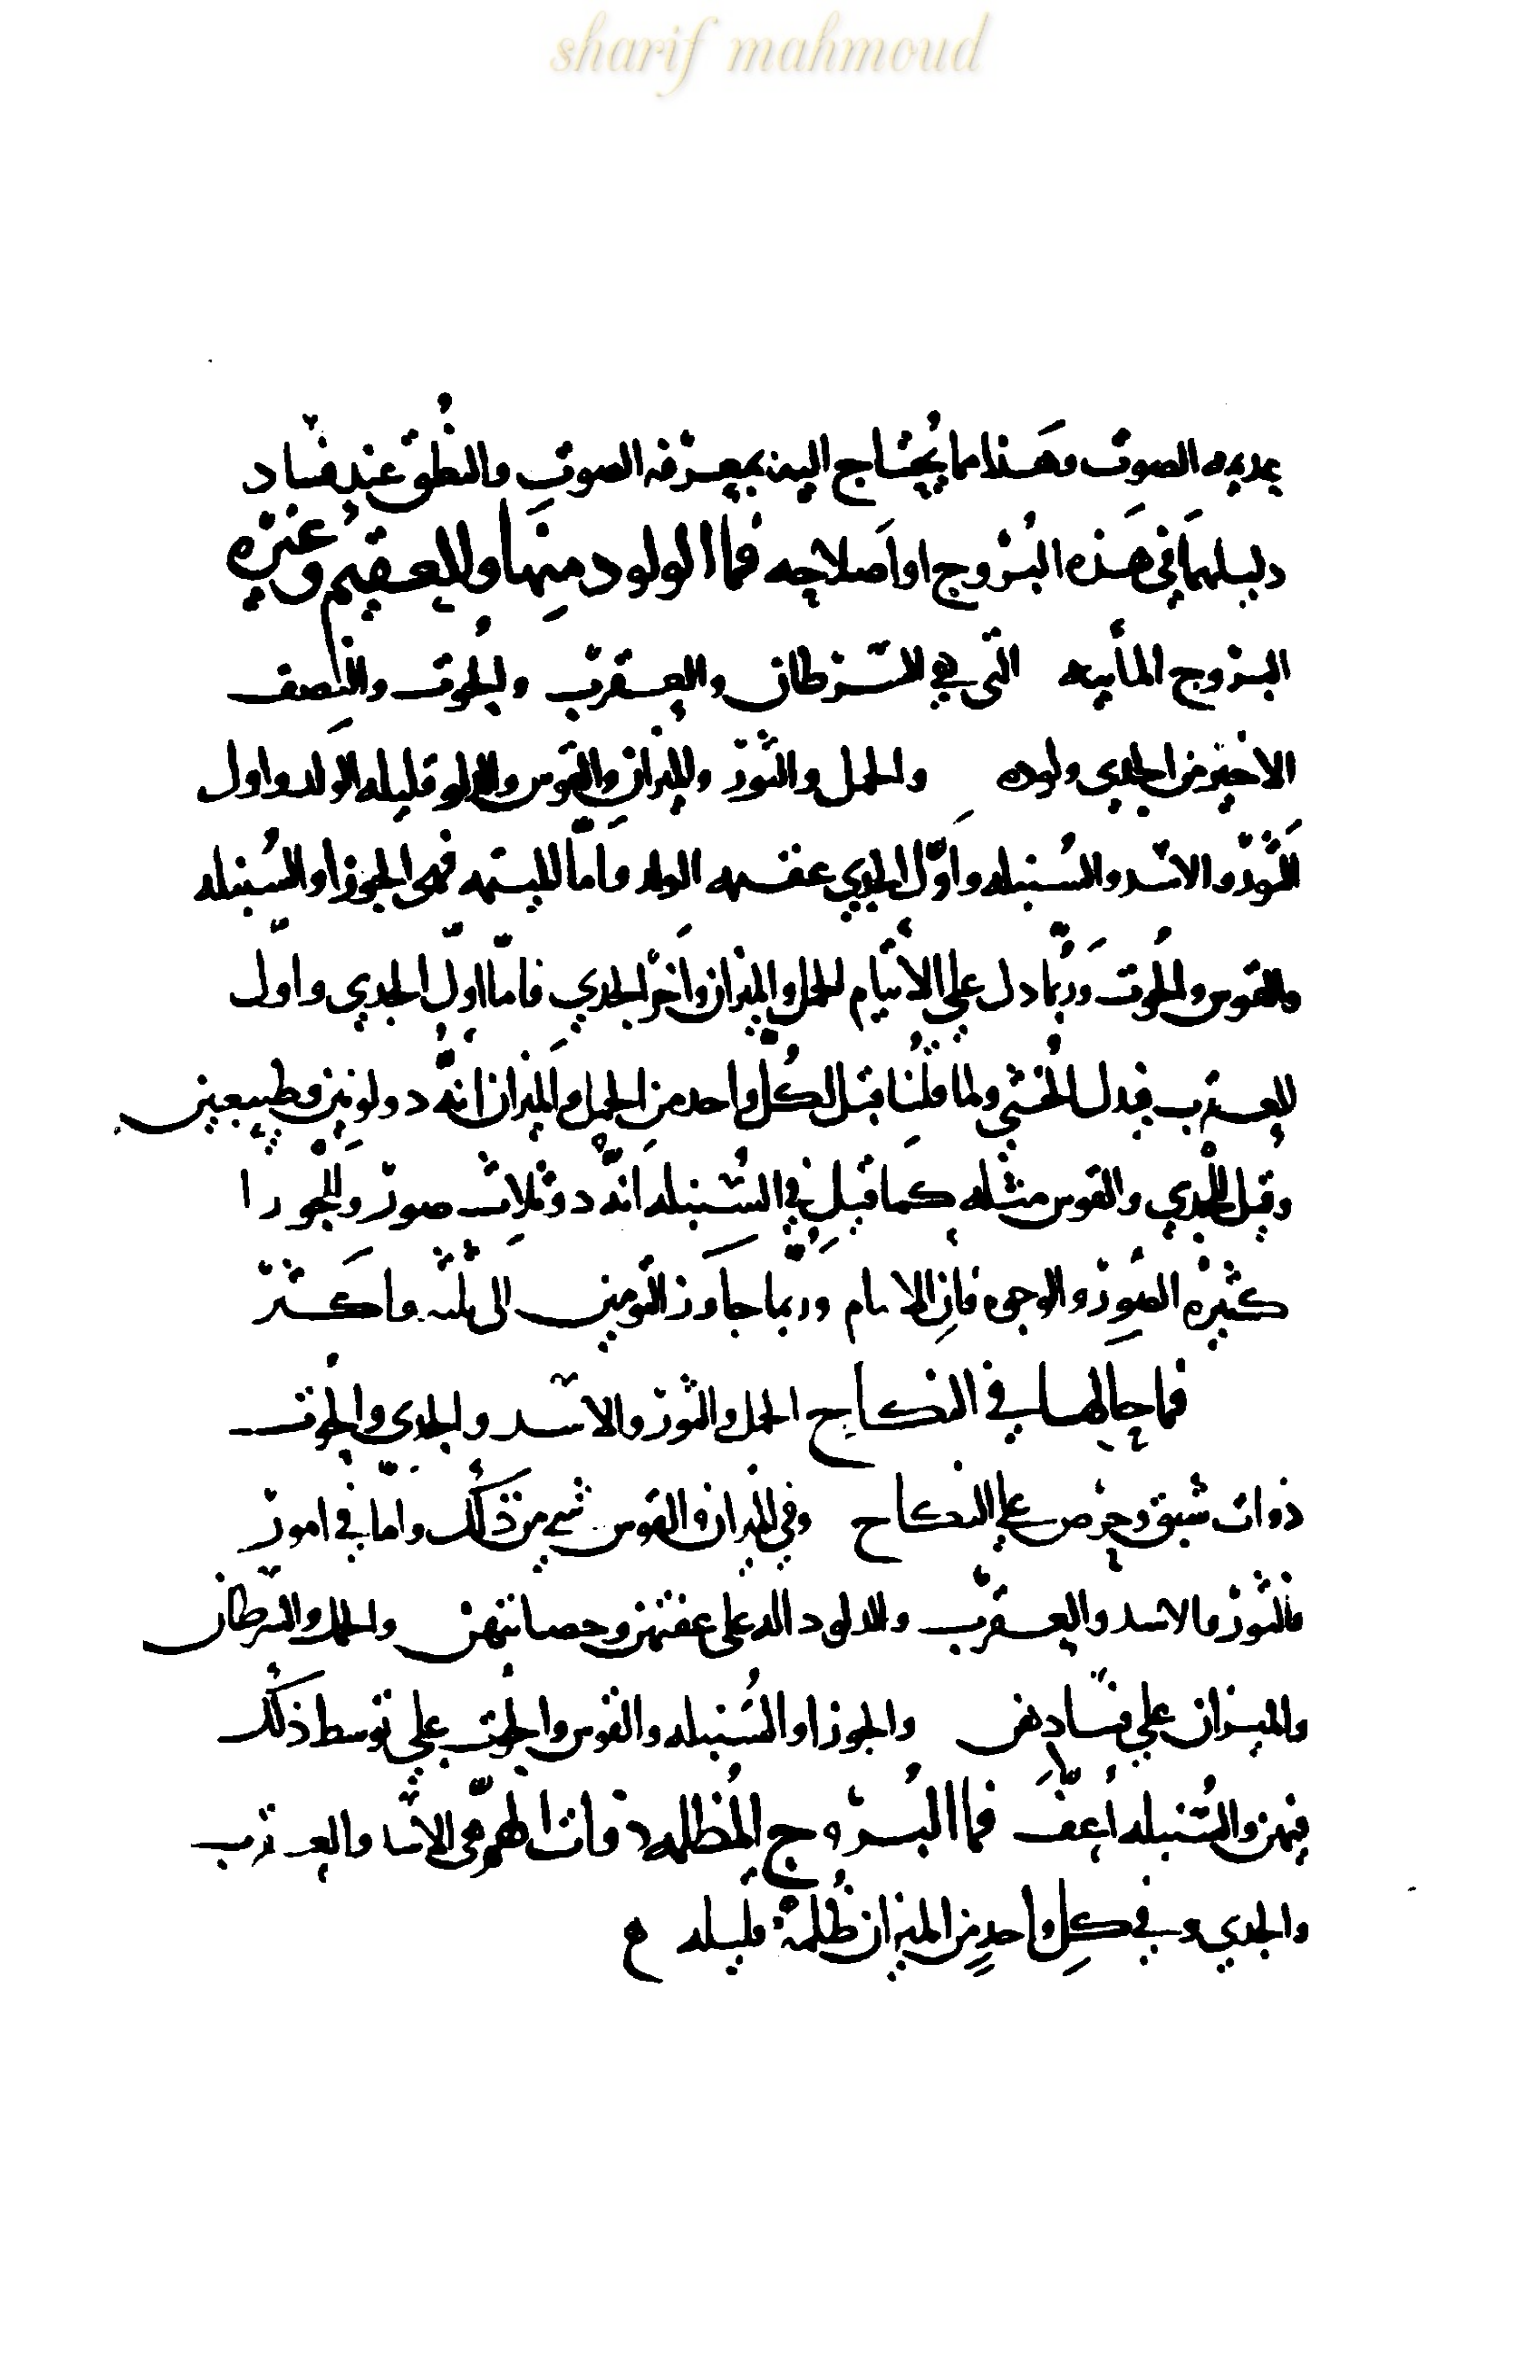 sharif mahmoud
الصوت وهذا مما يُحتاج اليه بمعرفه الصوت والنُطق عند فساد
دليلهما في هذه البُرُوج او اَصلاحه فما الولود منها والعقيم وغيره
البروج المائيه التي هي السرطان والعقرب والحُوت والنِصف
الاخير من الجدي ولوده والحمل والثور والميزان والقوس والدلو قليله الولد واول
الثَور والاسد والسُنبله واوّل الجدي عقيمه الولد واَمّا المتيمه فهى الجوزا والسُنبله
والقوس والحُوت ورُبّما دل على الأتيام الحمل والميزان واَخر الجدي فامّا اولّ الجدي واوّل
العقرب فيدل الخُنثي ولما قلُنا قبل لكُل واحد من الحمل والميزان انّهُ دو لونين وطبيعتين
وقيل الجدي والقوس مثله كما قيل في السُنبله انّهُ دو ثلاث صور والجوزا
كثيره الصُور والوجوه فانِ الاتيام ورُبّما جاوز التومين الى ثلثه واكثر
فما حالها في النكاح الحمل والثور والاسد والجدي والحُوت
ذوات شبق وحرص على النكاح وفي الميزان والقوس شي من ذلك واما في امور
فالثور والاسد والعقرب والدلو داله على عفتهن وحصانتهن والحمل والسرطان
والميزان علي فسادهن والجوزا والسُنبله والقوس والحُوت علي توسط ذلك
فيهن والسُنبله أعفّهُنَّ فما البُرُوج المُظلمه ذوات الهَمّ هى الاسد والعقرب
والجدي وفي كلِ واحدٍ من الميزان ظُلمة قليله